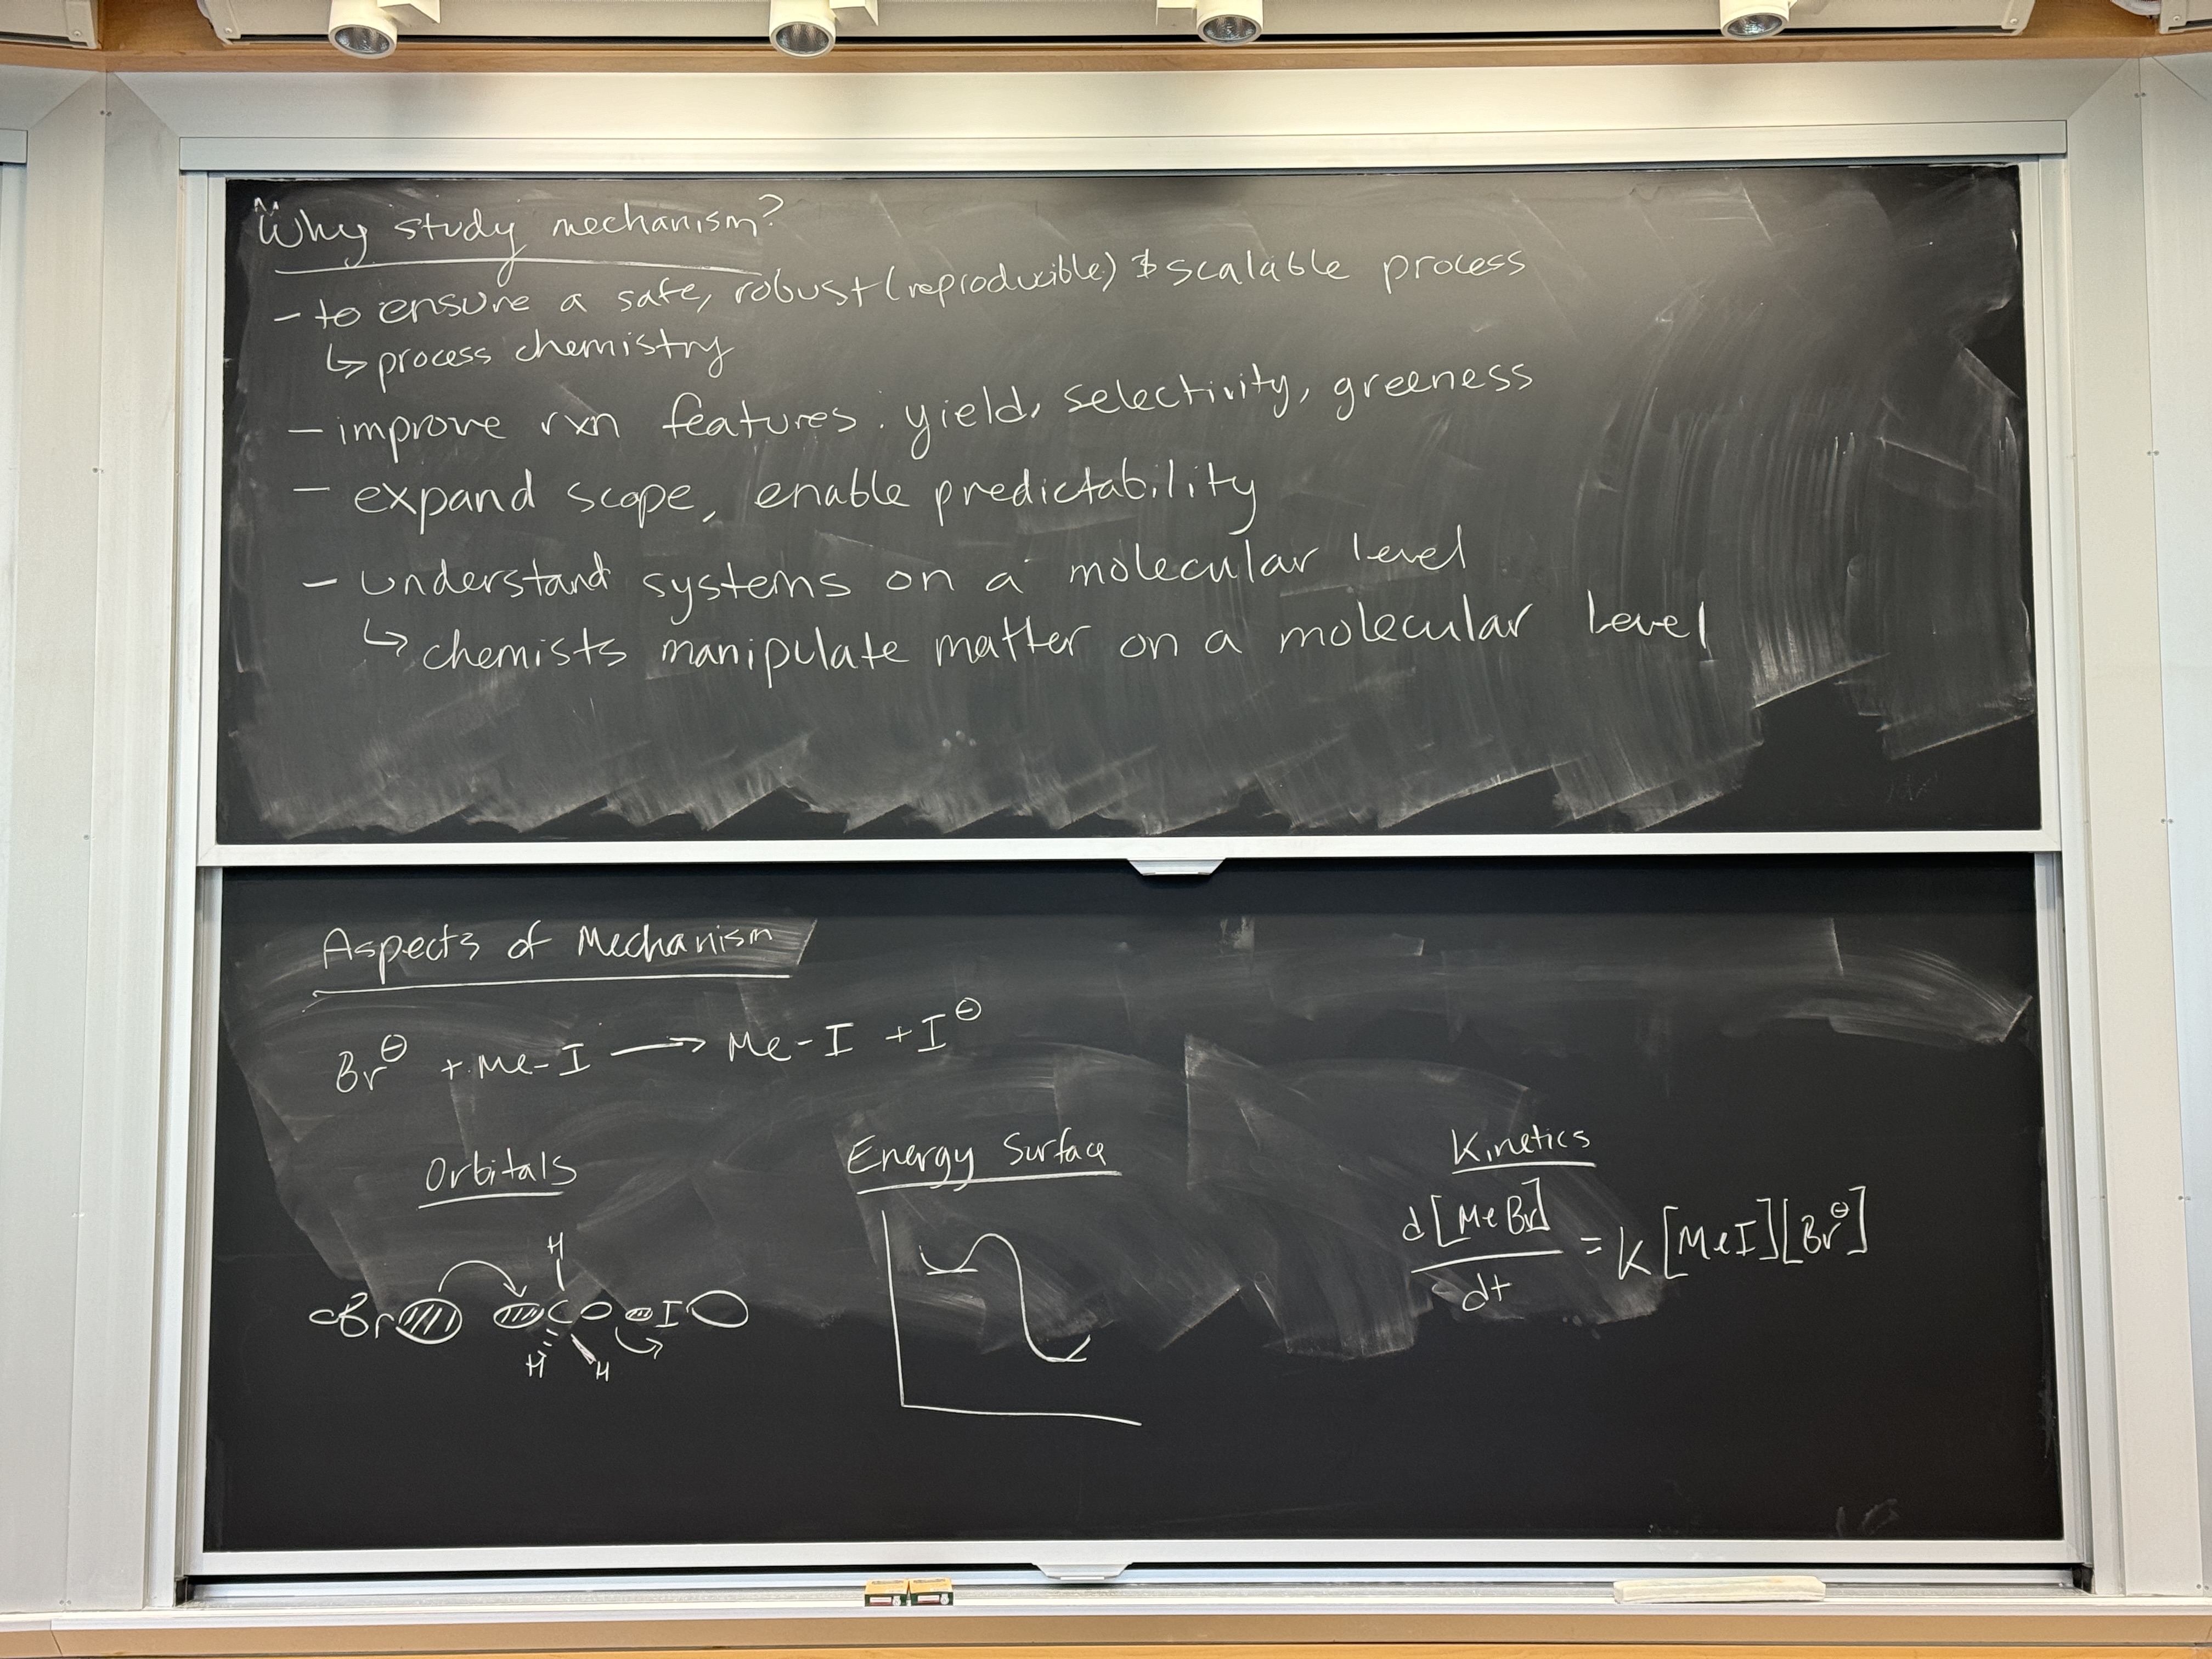 Why study mechanism?
- to ensure a safe, robust (reproducible) & scalable process
↳ process chemistry
- improve rxn features: yield, selectivity, greeness
- expand scope, enable predictability
- understand systems on a molecular level
↳ chemists manipulate matter on a molecular level
Aspects of Mechanism
Br⊖ + Me-I ⟶ Me-I + I⊖
Orbitals
H
Br C I
H H
Energy Surface
Kinetics
d[MeBr]/dt = k[MeI][Br⊖]